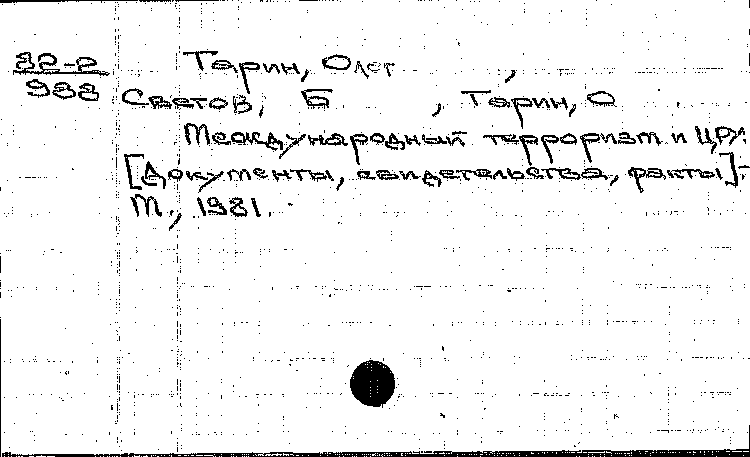 82-2 Тарин, Олег ,
988 Светов, Б , Тарин, О
Международный терроризм и ЦРУ:
[Документы, свидетельства, факты].-
М., 1981.